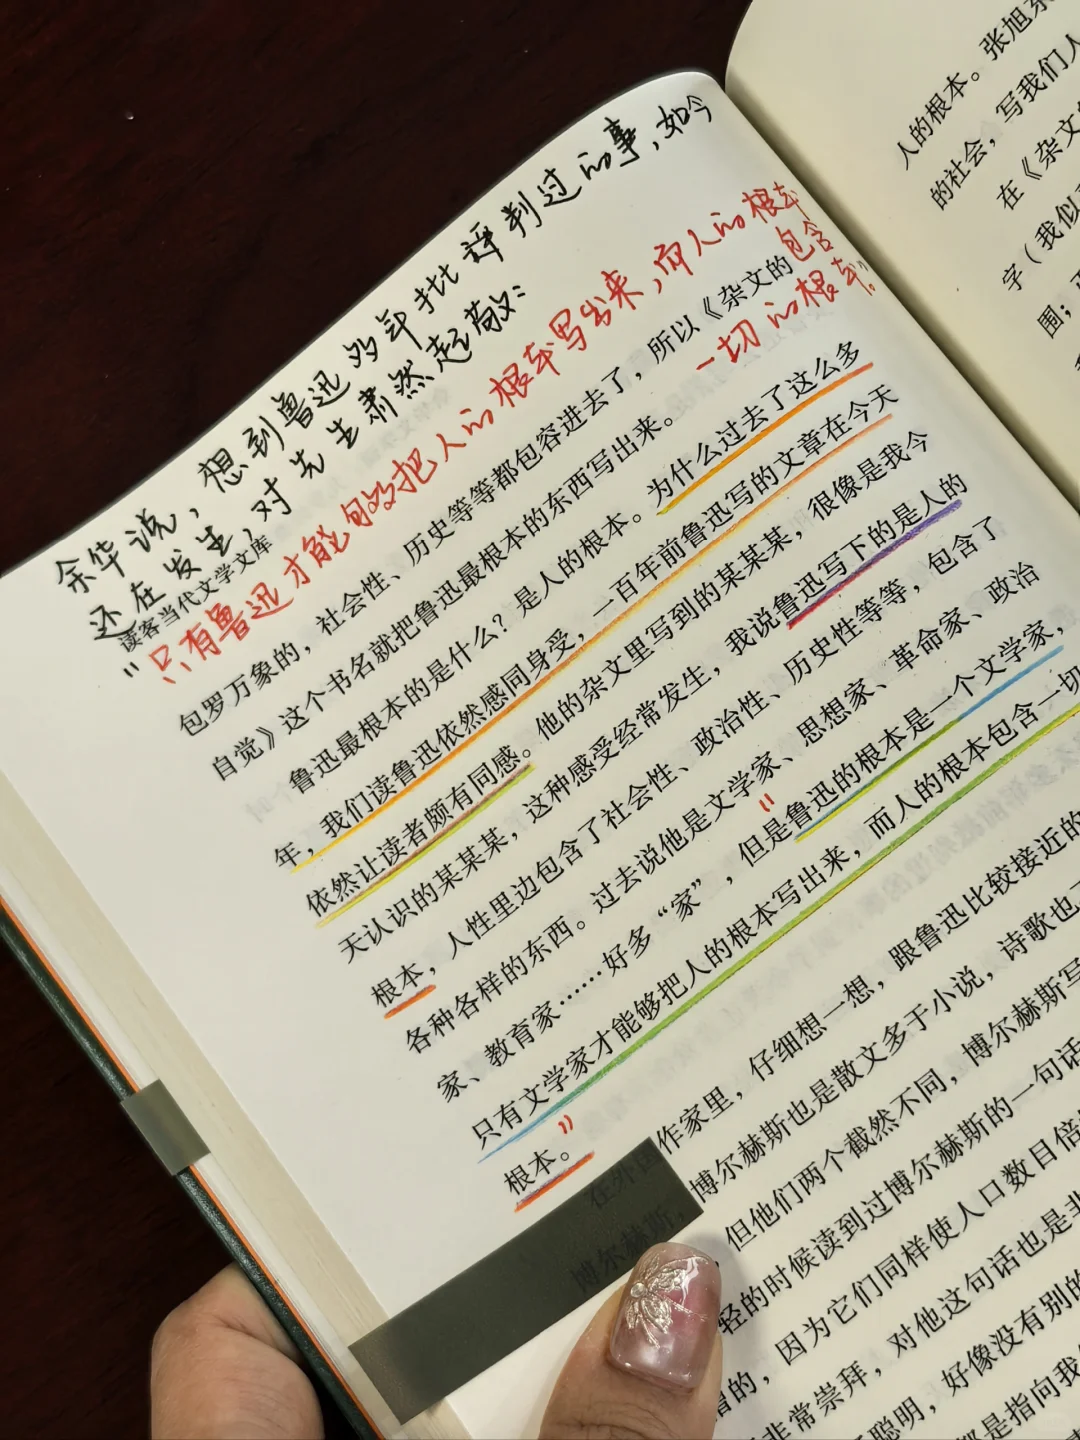 余华说，想到鲁迅多年批评判过的事，如今
还在发生，对先生肃然起敬：
"只有鲁迅才能够把人的根本写出来，而人的根本
包含
一切的根本"。
读客当代文学文库
包罗万象的，社会性、历史等等都包容进去了，所以《杂文的
自觉》这个书名就把鲁迅最根本的东西写出来。
鲁迅最根本的是什么？是人的根本。为什么过去了这么多
年，我们读鲁迅依然感同身受，一百年前鲁迅写的文章在今天
依然让读者颇有同感。他的杂文里写到的某某某，很像是我今
天认识的某某某，这种感受经常发生，我说鲁迅写下的是人的
根本，人性里边包含了社会性、政治性、历史性等等，包含了
各种各样的东西。过去说他是文学家、思想家、革命家、政治
家、教育家……好多“家”，但是鲁迅的根本是一个文学家，
只有文学家才能够把人的根本写出来，而人的根本包含一切
根本。
在外国作家里，仔细想一想，跟鲁迅比较接近的
博尔赫斯，博尔赫斯也是散文多于小说，诗歌也
但他们两个截然不同，博尔赫斯写
轻的时候读到过博尔赫斯的一句话
因为它们同样使人口数目倍
憎的，非常崇拜，对他这句话也是非
聪明，好像没有别的
都是指向我
人的根本。张旭东
的社会，写我们人
在《杂文
字（我似
围；